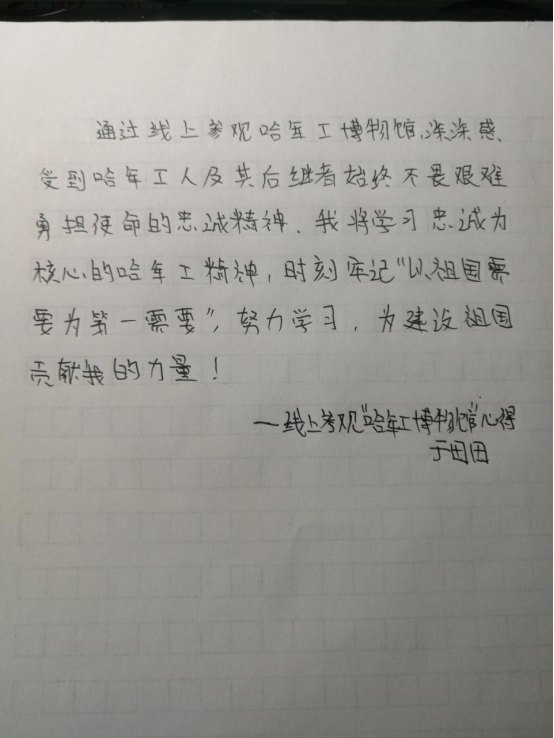 通过线上参观哈军工博物馆,深深感
受到哈军工人及其后继者始终不畏艰难
勇担使命的忠诚精神、我将学习忠诚为
核心的哈军工精神,时刻牢记“以祖国需
要为第一需要”,努力学习,为建设祖国
贡献我的力量!
—线上参观“哈军工博物馆”心得
于田田